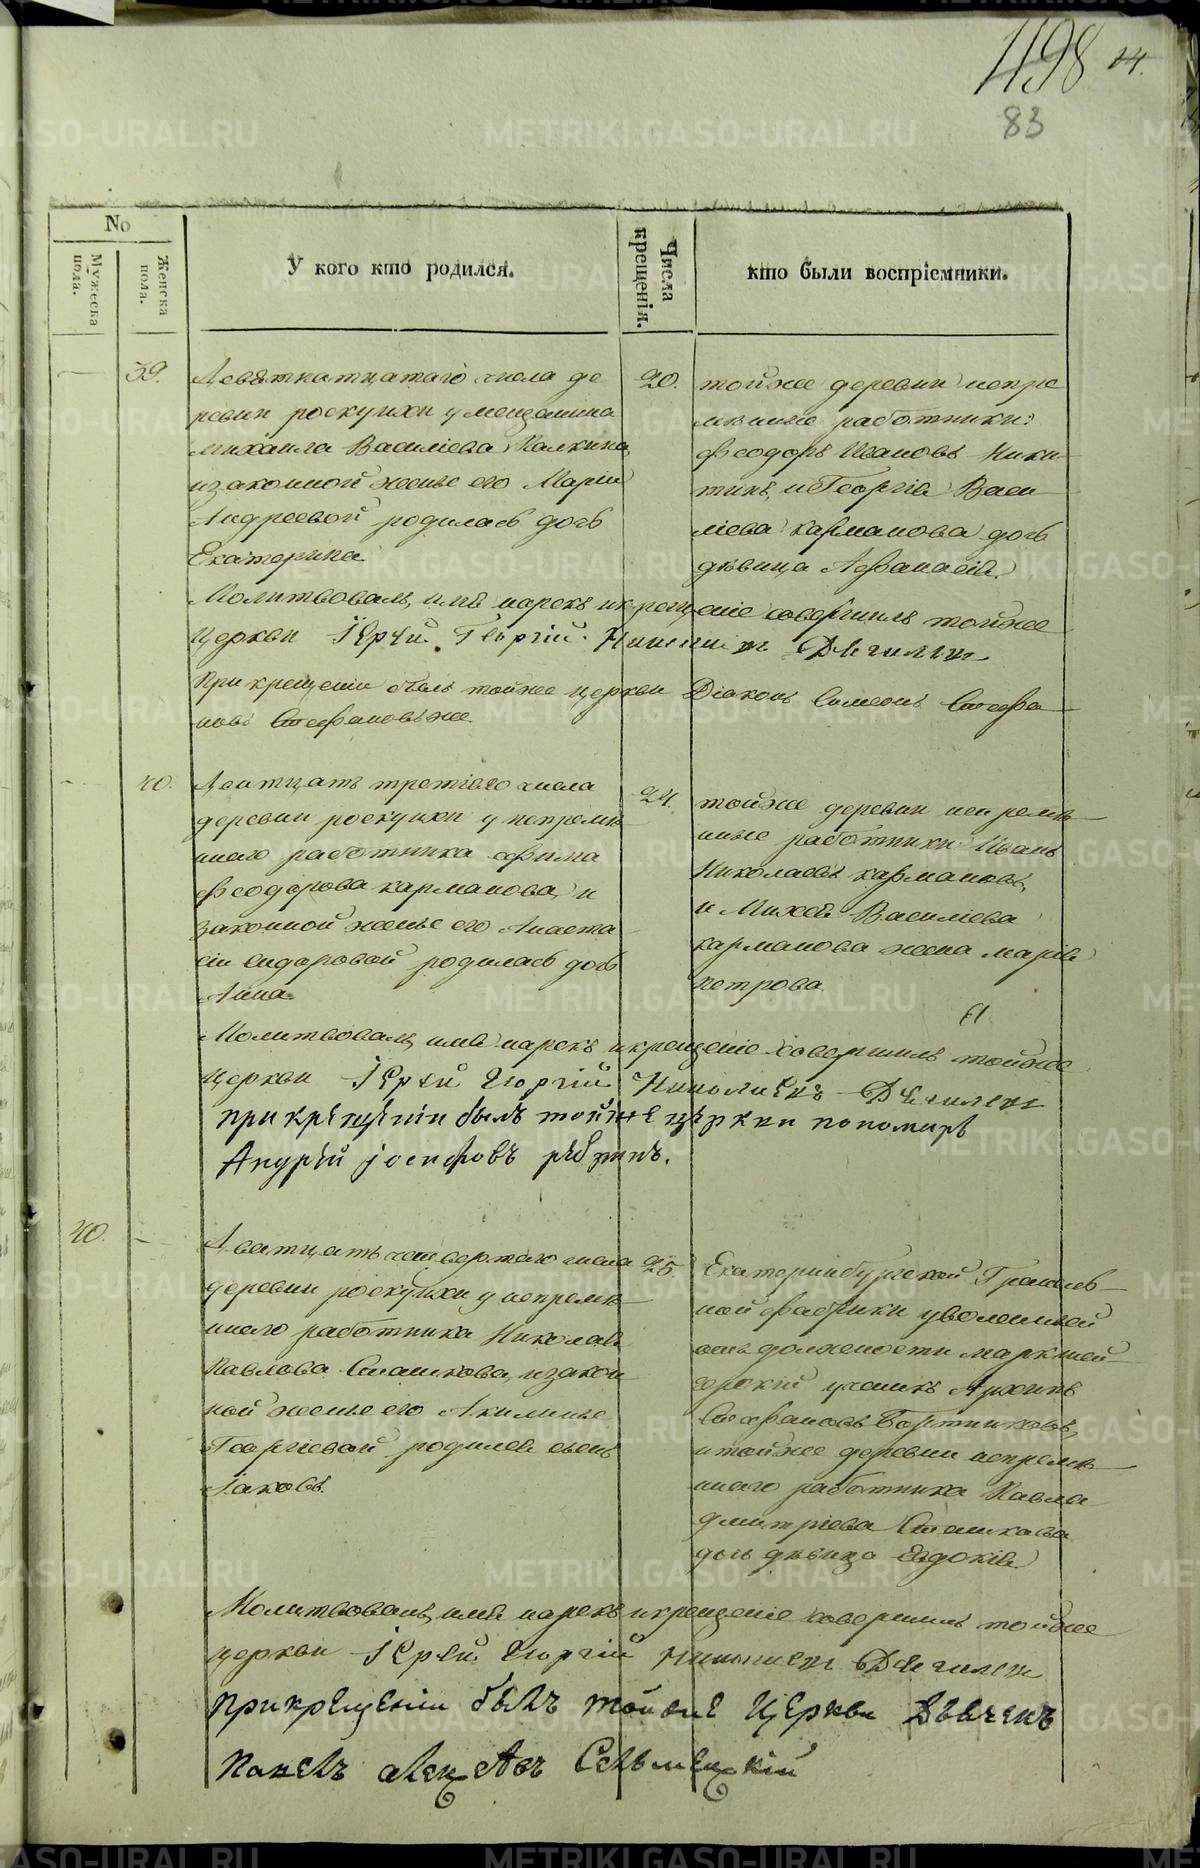 498
14.
83
No
Мужеска пола.
Женска пола.
У кого кто родился.
Числа крещенія.
кто были воспріемники.
39.
Девятнатцатаго числа де
ревни роскуихи у
михаила Василіева Палкина
изаконной жены его Маріи
Андреевой родилась дочь
Екатерина
20.
тойже деревни непре
мѣнные работники:
Феодоръ Ивановъ Ники
тинъ, и Георгія Васи
ліева карманова дочь
дѣвица Афанасія.
Молитвовалъ, имя нарекъ икрещеніе совершилъ тойже
церкви Іерей Георгій
При крещеніи былъ тойже церкви Діаконъ Симеонъ Стефа
новъ Стефановъ же
40.
Дватцать третіего числа
деревни роскуихи у непремѣн
наго работника Афима
Феодорова карманова, и
законной жены его Анаста
сіи сидоровой родилась дочь
Анна
24.
тойже деревни непремѣн
ные работники Иванъ
Николаевъ кармановъ,
и Михея Василіева
карманова жена марія
петрова
Молитвовалъ, имя нарекъ икрещеніе совершилъ тойже
церкви Іерей Георгій
при крещеніи былъ тойже церкви пономарь
Андрей іосифовъ
40.
Дватцать четвертаго числа
деревни роскуихи у непремѣн
наго работника Николая
Павлова Сташкова, изакон
ной жены его Акилины
Георгіевой родился сынъ
Іаковъ
25.
Екатеринбургской Граниль
ной фабрики уволенный
отъ должности маркшей
дерскій ученикъ Архипъ
Стефановъ Бортниковъ,
итойже деревни непремѣн
наго работника Павла
дмитріева Сташкова
дочь дѣвица Евдокія
Молитвовалъ, имя нарекъ икрещеніе совершилъ тойже
церкви Іерей Георгій
При крещеніи былъ тойже Церкви Дьячекъ
Павелъ
METRIKI.GASO-URAL.RU